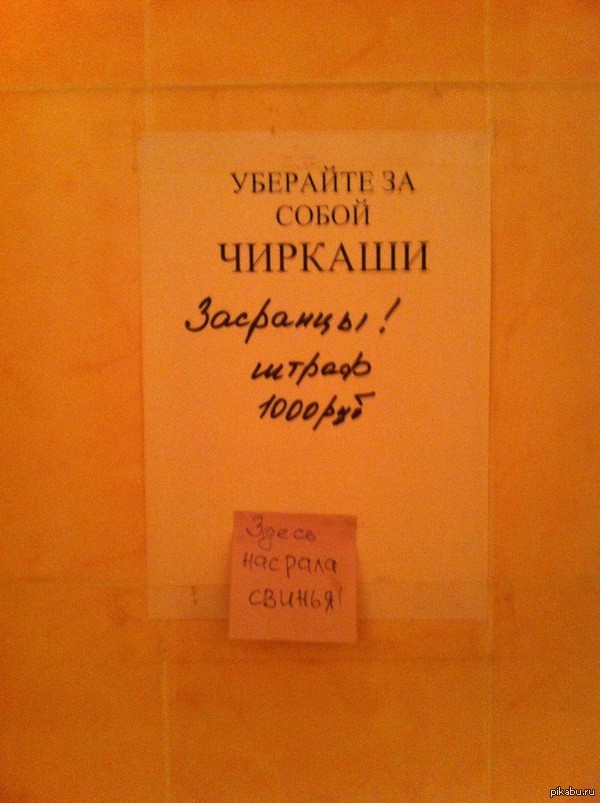 УБЕРАЙТЕ ЗА
СОБОЙ
ЧИРКАШИ
Засранцы!
штраф
1000руб
Здесь
насрала
свинья!
pikabu.ru